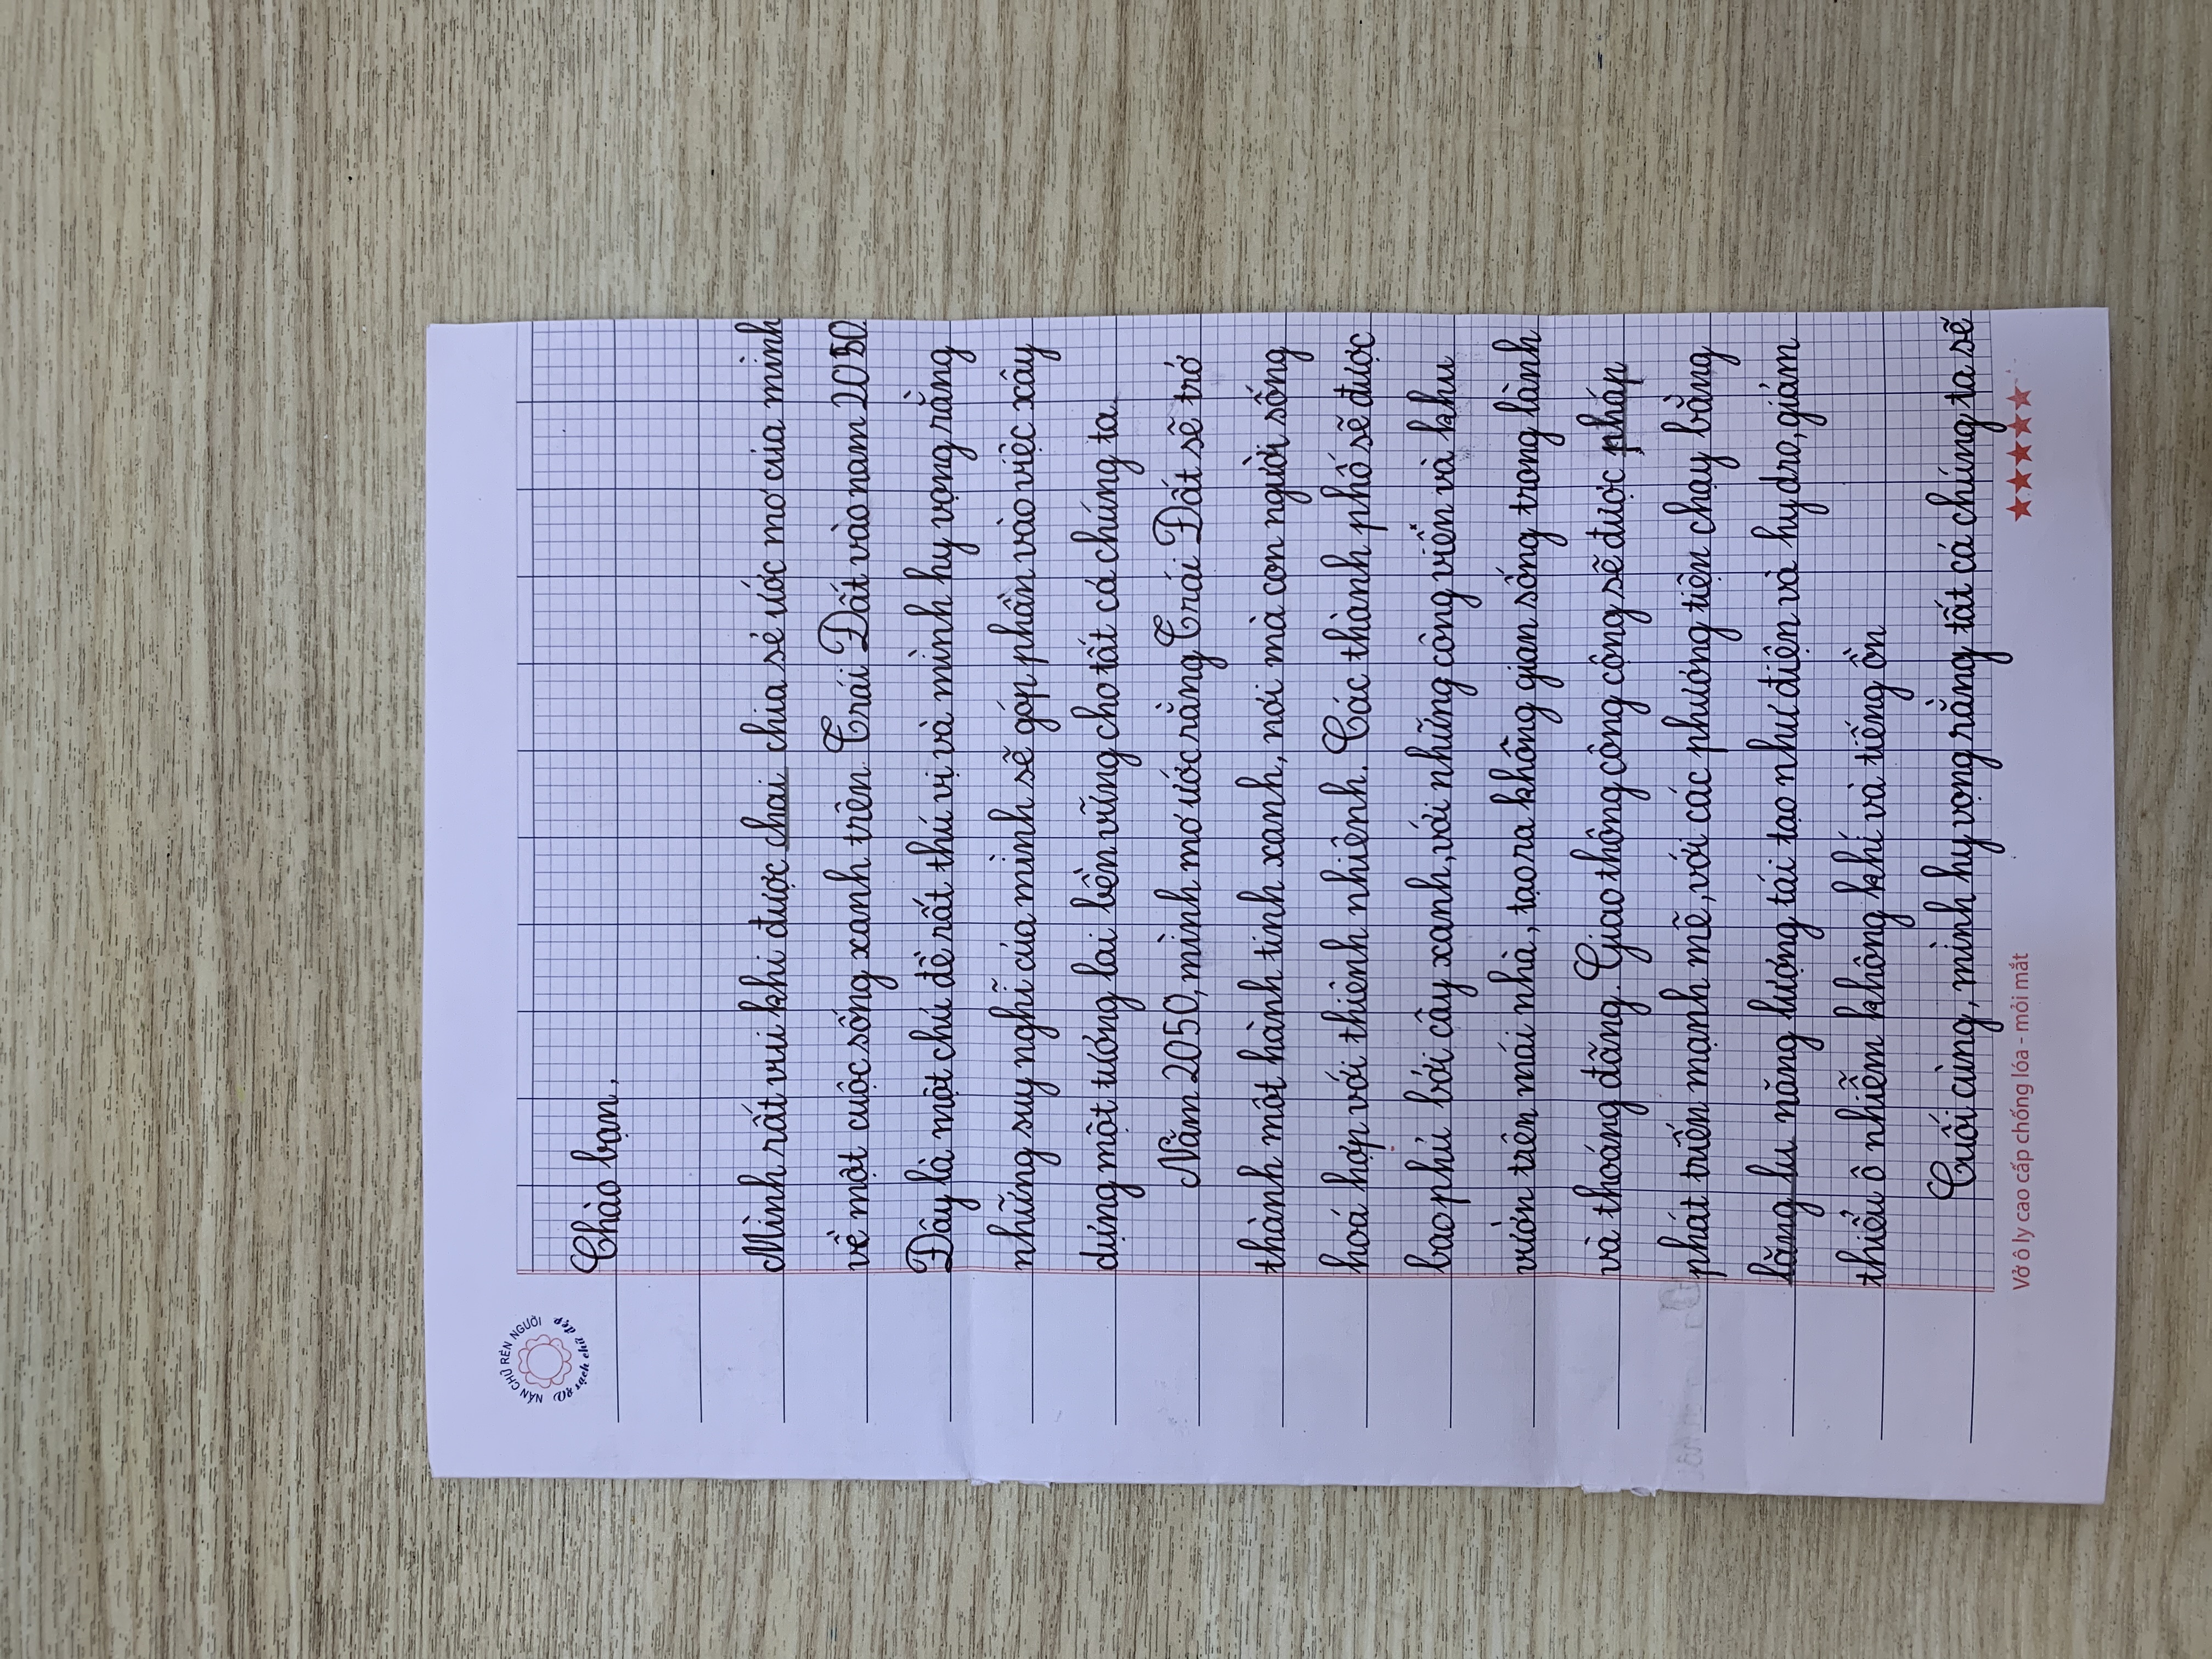 NẮN CHỮ RÈN NGƯỜI
Vở sạch chữ đẹp
Chào bạn,
Mình rất vui khi được chai chia sẻ ước mơ của mình
về một cuộc sống xanh trên Trái Đất vào năm 2050
Đây là một chủ đề rất thú vị và mình hy vọng rằng
những suy nghĩ của mình sẽ góp phần vào việc xây
dựng một tương lai bền vững cho tất cả chúng ta.
Năm 2050, mình mơ ước rằng Trái Đất sẽ trở
thành một hành tinh xanh, nơi mà con người sống
hoá hợp với thiênh nhiênh. Các thành phố sẽ được
bao phủ bởi cây xanh, với những công viên và khu
vườn trên mái nhà, tạo ra không gian sống trong lành
và thoáng đãng. Giao thông công cộng sẽ được pháp
phát triển mạnh mẽ, với các phương tiện chạy bằng
lăng lu năng lượng tái tạo như điện và hydro, giảm
thiểu ô nhiễm không khí và tiếng ồn
Cuối cùng, mình hy vọng rằng tất cả chúng ta sẽ
Vở ô ly cao cấp chống lóa - mỏi mắt